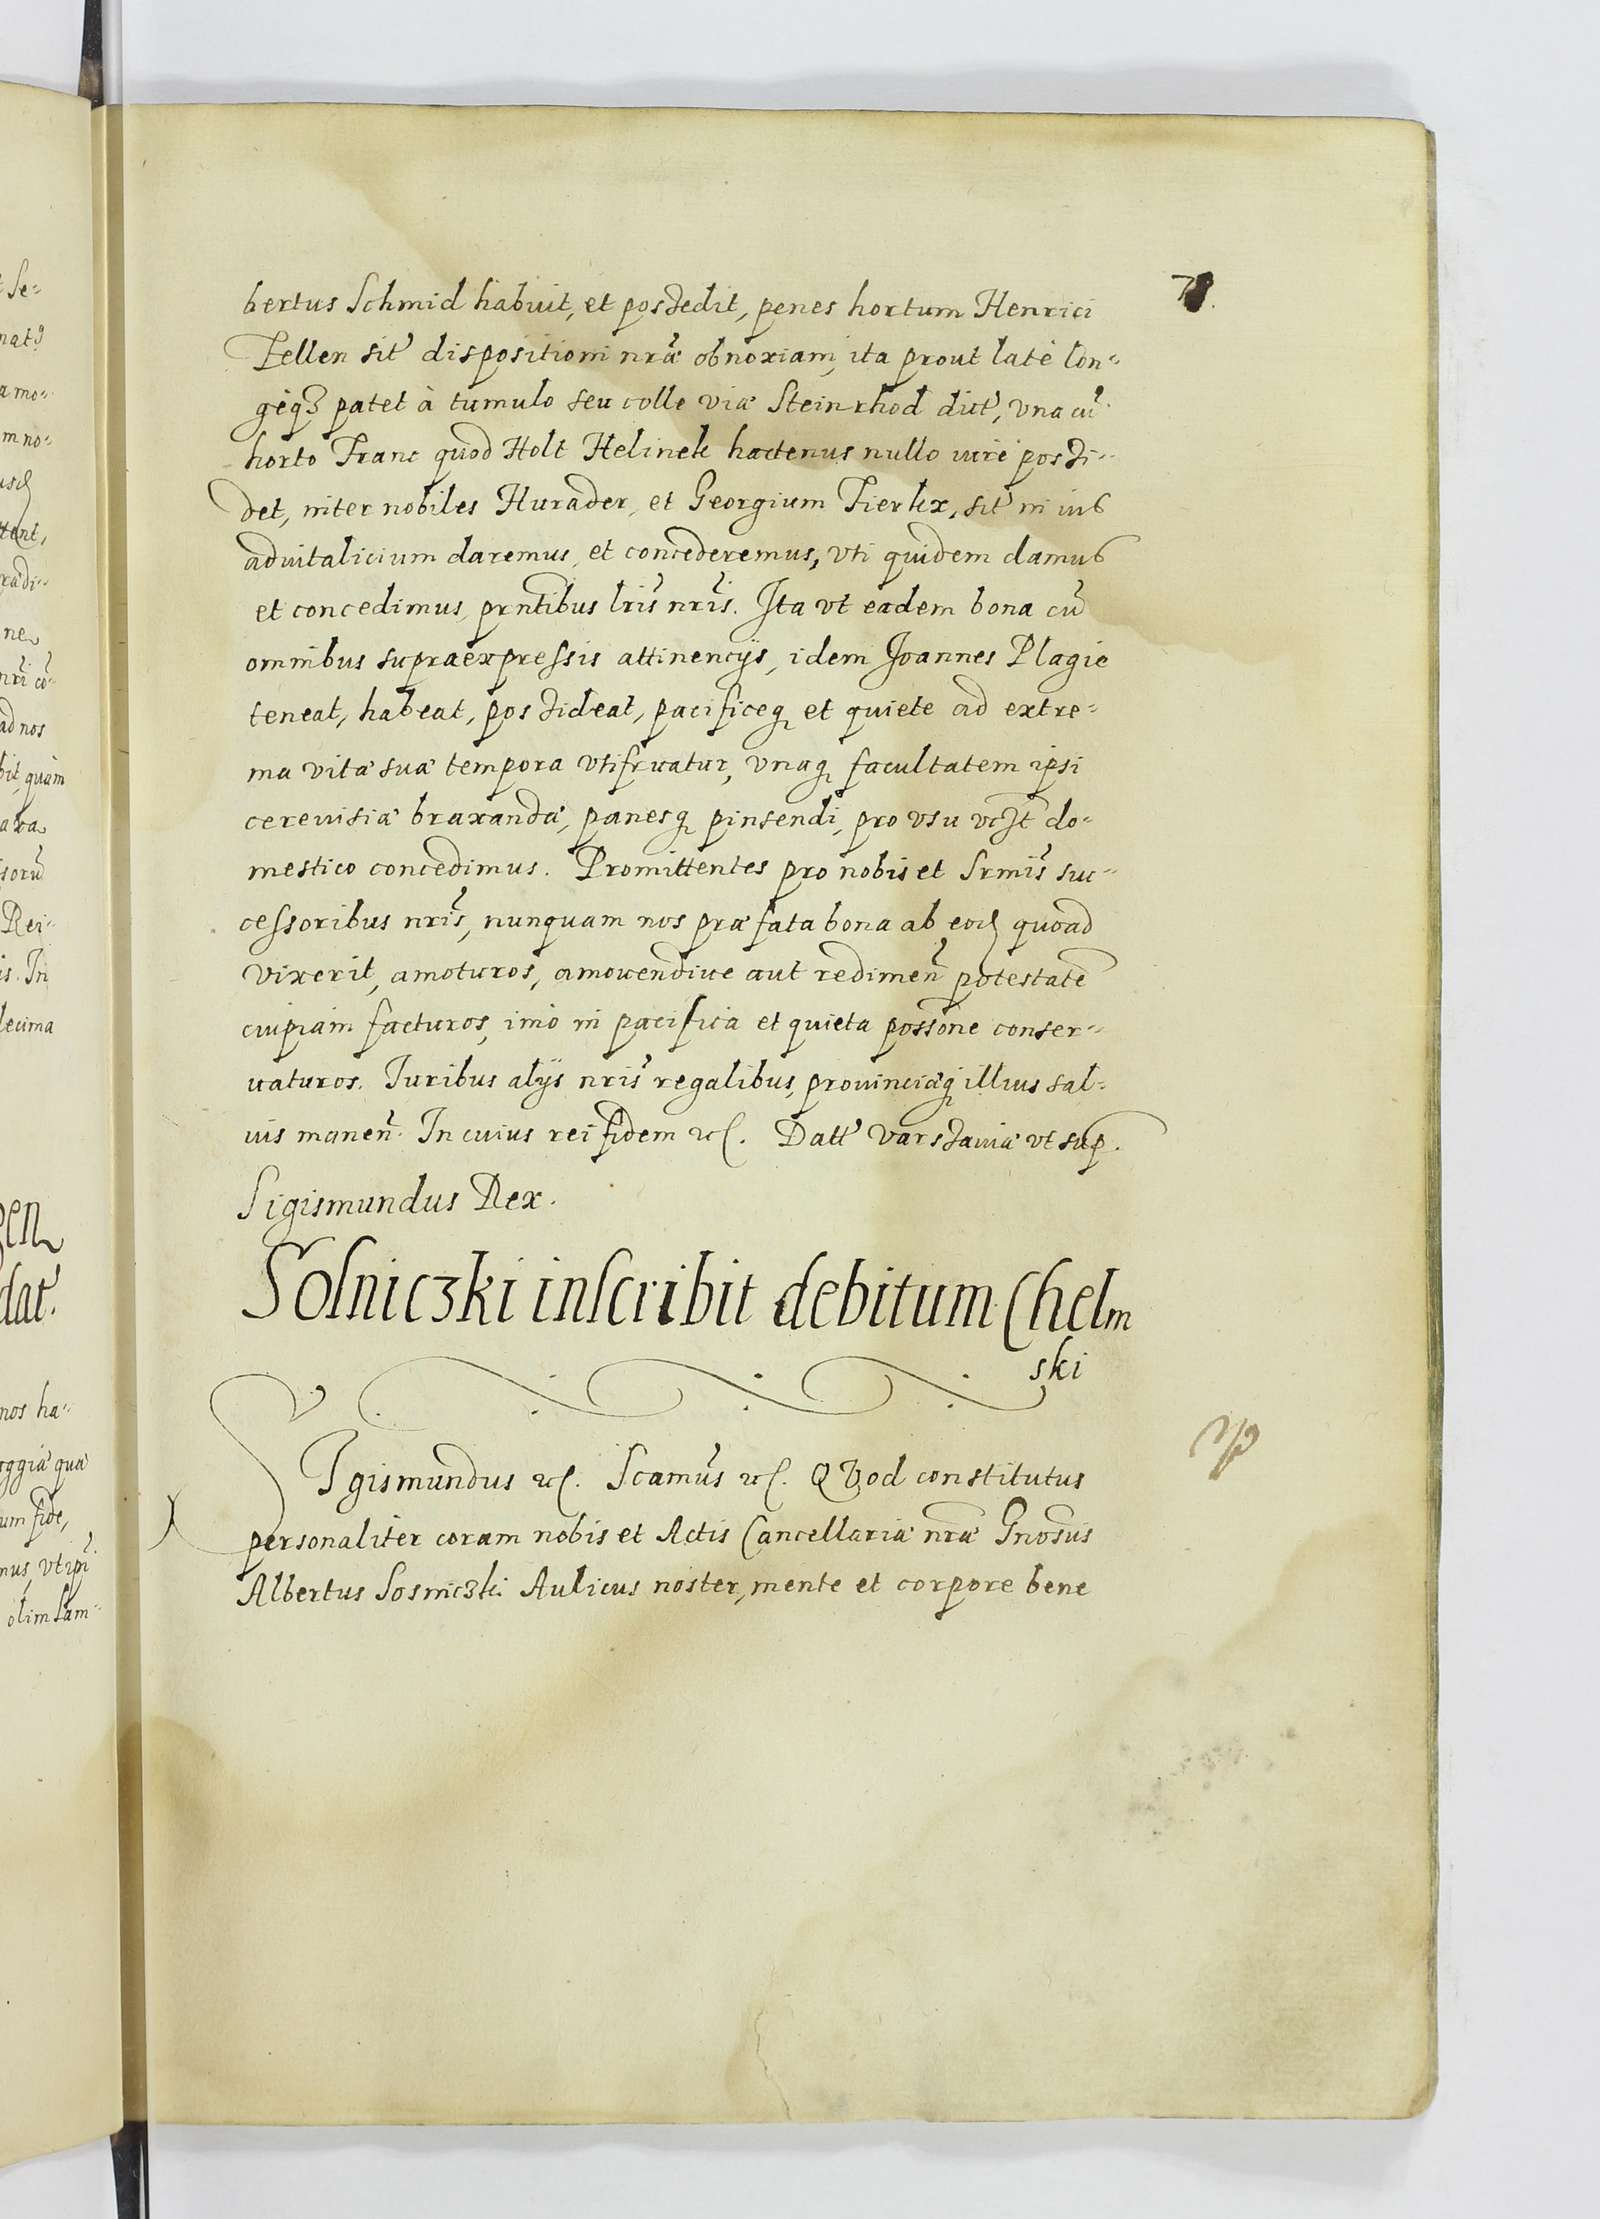 bertus Schmid habuit, et possedit, penes hortum Henrici
Pellen sit dispositioni nrӕ obnoxiam, ita prout latè lon-
gèq3 patet à tumulo seu colle viӕ Steinrhod dict, vna cū
horto Franc quod Holt Helinek hactenus nullo iure possi-
det, inter nobiles Hurader, et Georgium Fierkx, sit in ius
aduitalicium daremus, et concederemus, vti quidem damus
et concedimus, prntibus lris nris. Ita vt eadem bona cū
omnibus supraexpressis attinencijs, idem Joannes Plagie
teneat, habeat, possideat, pacificeq et quiete ad extre-
ma vitæ suæ tempora vtifruatur, vnaq facultatem ipsi
cereuisiæ braxandæ, panesq pinsendi, pro vsu vcst do-
mestico concedimus. Promittentes pro nobis et Srmis suc-
cessoribus nris, nunquam nos præfata bona ab eod quoad
vixerit, amoturos, amouendiue aut redimen potestatē
cuipiam facturos, imò in pacifica et quieta possone conser-
uaturos. Juribus alijs nris regalibus, prouinciæq illius sal-
uis manen. In cuius rei fidem etc. Datt Varssauiæ vt sup.
Sigismundus Rex.
Sosniczki inscribit debitum Chelm
ski
Sigismundus etc. Scamus etc. QVod constitutus
personaliter coram nobis et Actis Cancellariæ nræ Gnosus
Albertus Sosniczki Aulicus noster, mente et corpore bene